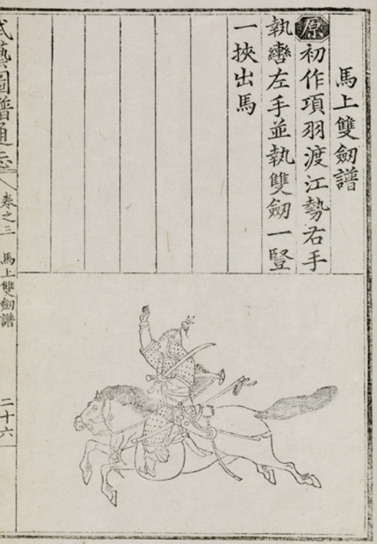 馬上雙劒譜
原初作項羽渡江勢右手
執轡左手並執雙劒一竪
一挾出馬
武藝圖譜通志 卷之三 馬上雙劒譜 二十六